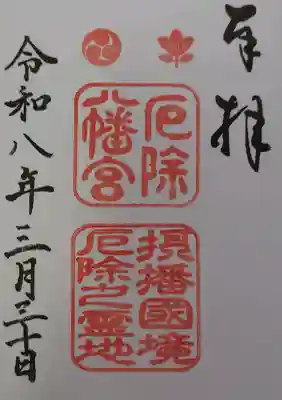 奉拝
厄除
八幡宮
摂播國境
厄除之霊地
令和八年三月三十日